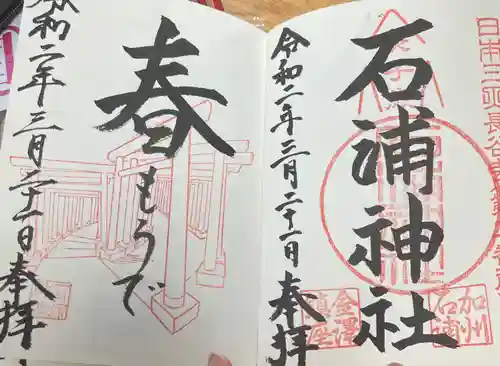 石浦神社
加州
石浦
令和二年三月二十一日 奉拝
金澤
鎮座
春もうで
令和二年三月二十一日 奉拝